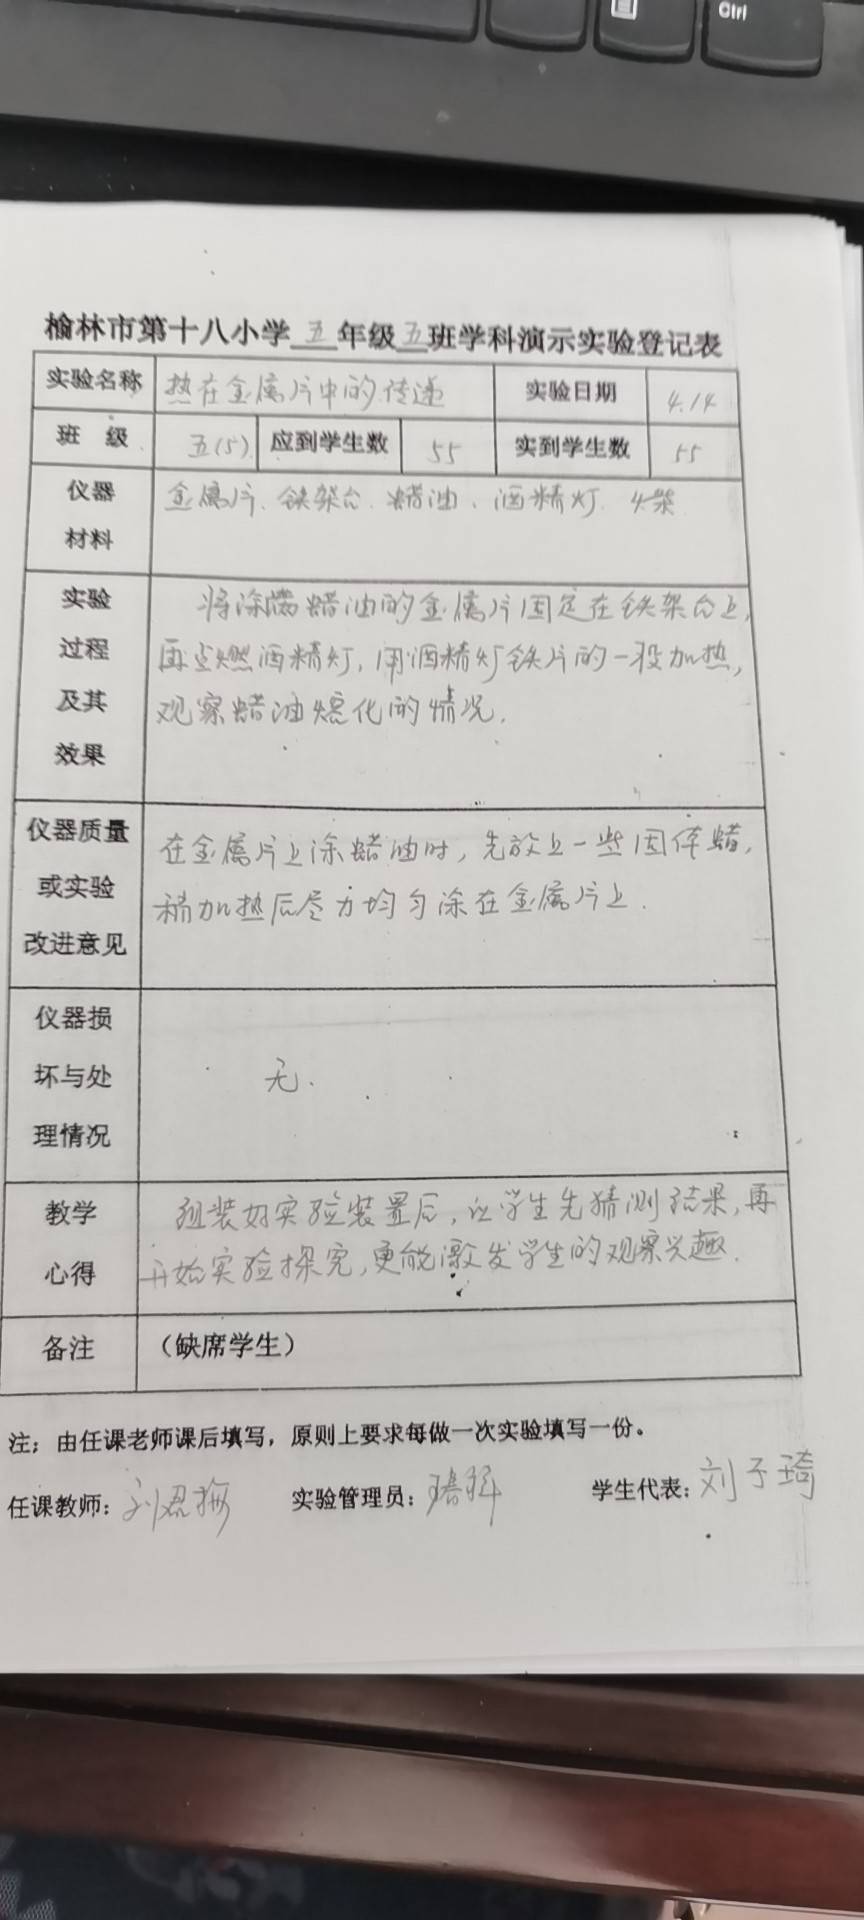 Ctrl
榆林市第十八小学五年级五班学科演示实验登记表
实验名称 热在金属片中的传递 实验日期 4.14
班 级 五(5) 应到学生数 55 实到学生数 55
仪器
材料
金属片、铁架台、蜡油、酒精灯、火柴
实验
过程
及其
效果
将涂满蜡油的金属片固定在铁架台上,
再点燃酒精灯,用酒精灯铁片的一段加热,
观察蜡油熔化的情况.
仪器质量
或实验
改进意见
在金属片上涂蜡油时,先放上一些固体蜡,
稍加热后尽力均匀涂在金属片上.
仪器损
坏与处
理情况
无.
教学
心得
组装好实验装置后,让学生先猜测结果,再
开始实验探究,更能激发学生的观察兴趣.
备注 (缺席学生)
注:由任课老师课后填写,原则上要求每做一次实验填写一份。
任课教师: 实验管理员: 学生代表:刘子琦